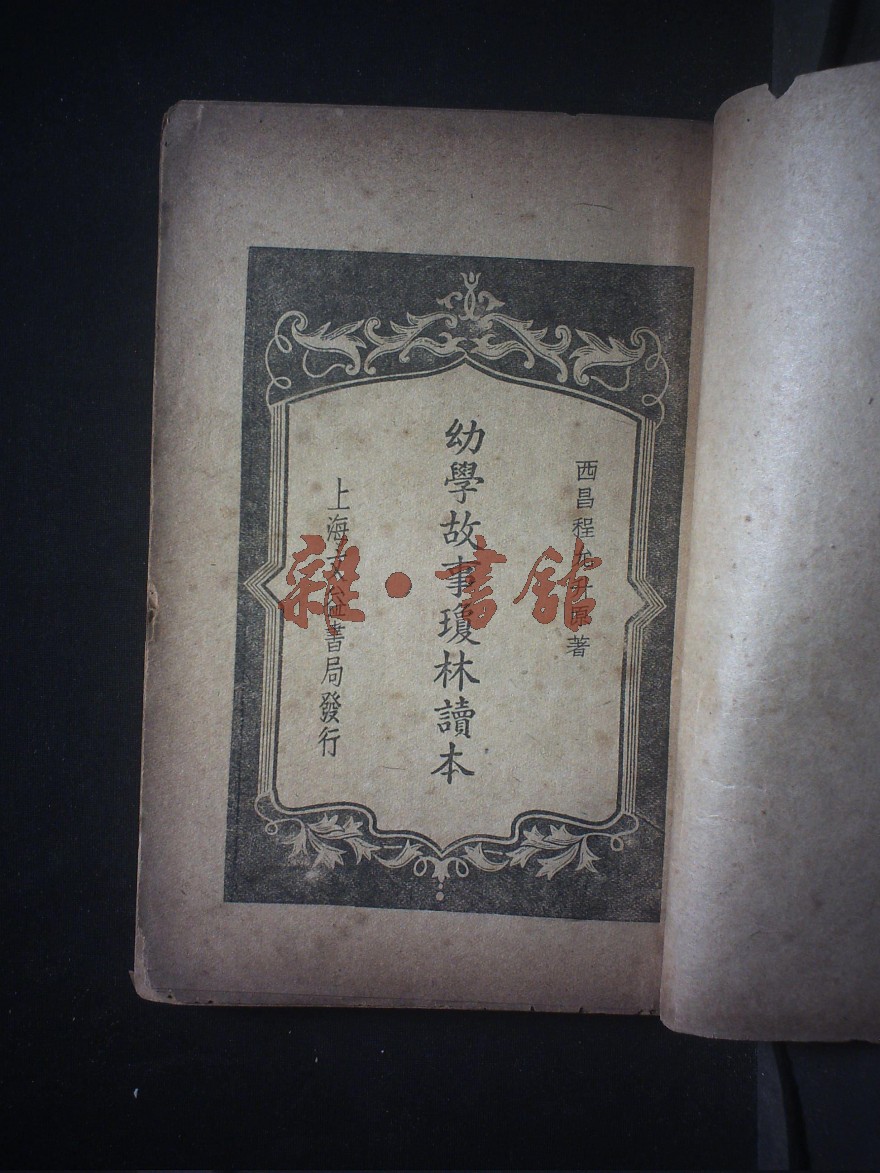 西昌程允升原著
幼學故事瓊林讀本
上海文益書局發行
雜·書館